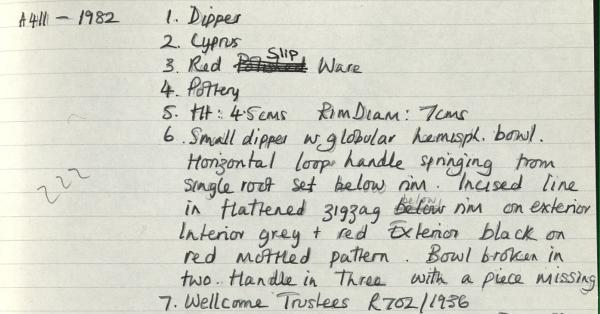 A411 – 1982 1. Dipper
2. Cyprus
3. Red Polished Slip Ware
4. Pottery
5. Ht: 4.5cms Rim Diam: 7cms
6. Small dipper w globular hemisph. bowl.
Horizontal loop handle springing from
single root set below rim. Incised line
222
in flattened zigzag below below rim on exterior
Interior grey + red Exterior black on
red mottled pattern. Bowl broken in
two. Handle in Three with a piece missing
7. Wellcome Trustees R702/1936